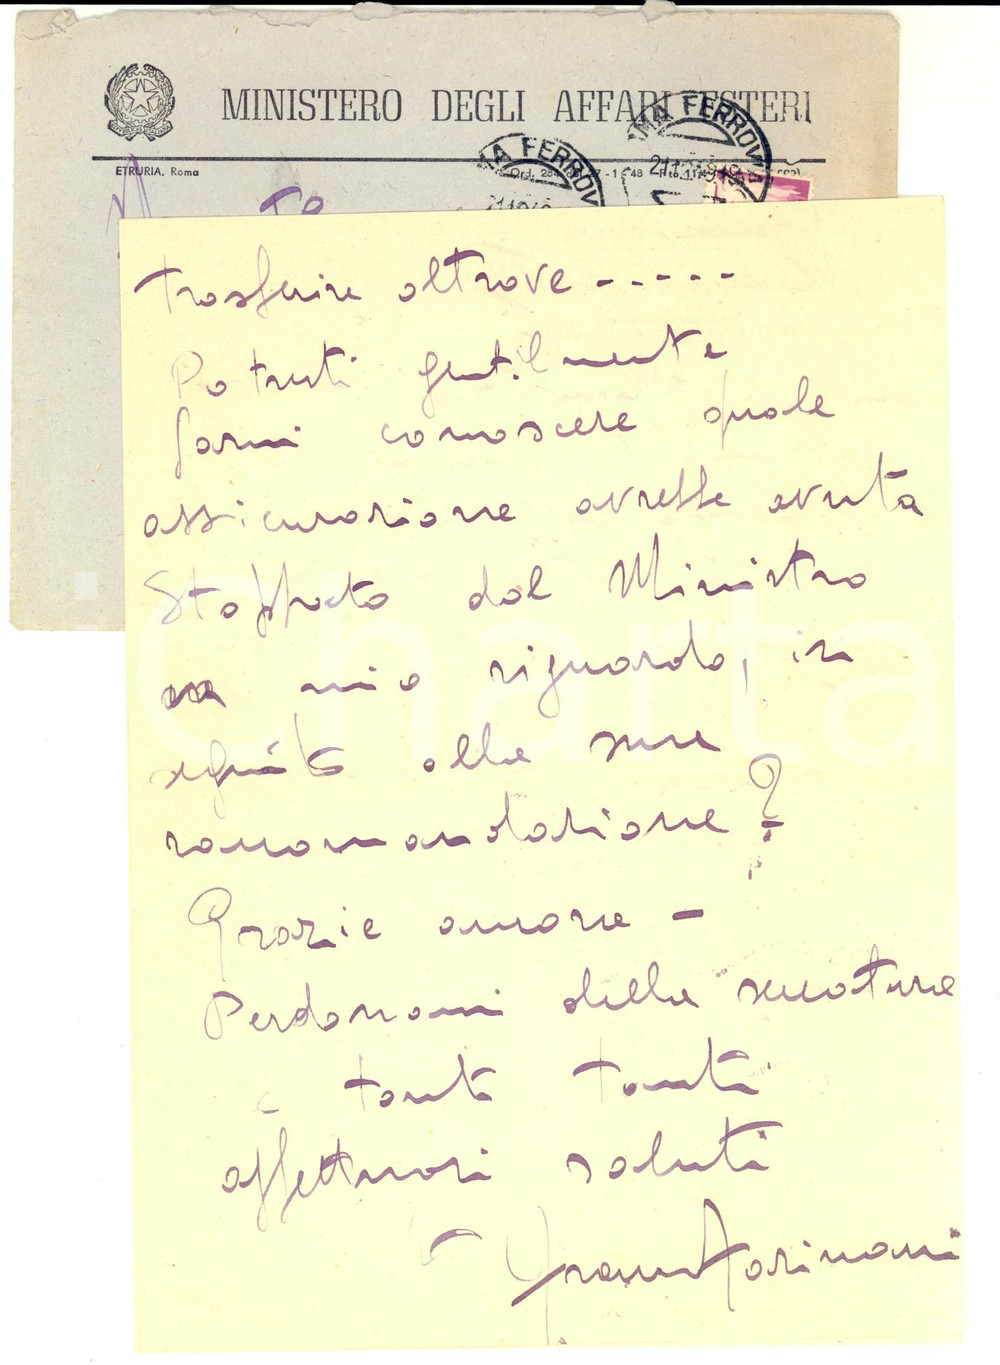 MINISTERO DEGLI AFFARI ESTERI
ETRURIA, Roma
MA FERROV
MA FERROV
trasferire altrove -----
Potresti gentilmente
farmi conoscere quale
assicurazione avrebbe avuta
Stoppato dal Ministro
mio riguardo, in
seguito alle sue
raccomandazione?
Grazie ancora -
Perdonami delle seccature
tanti tanti
affettuosi saluti
iCharta